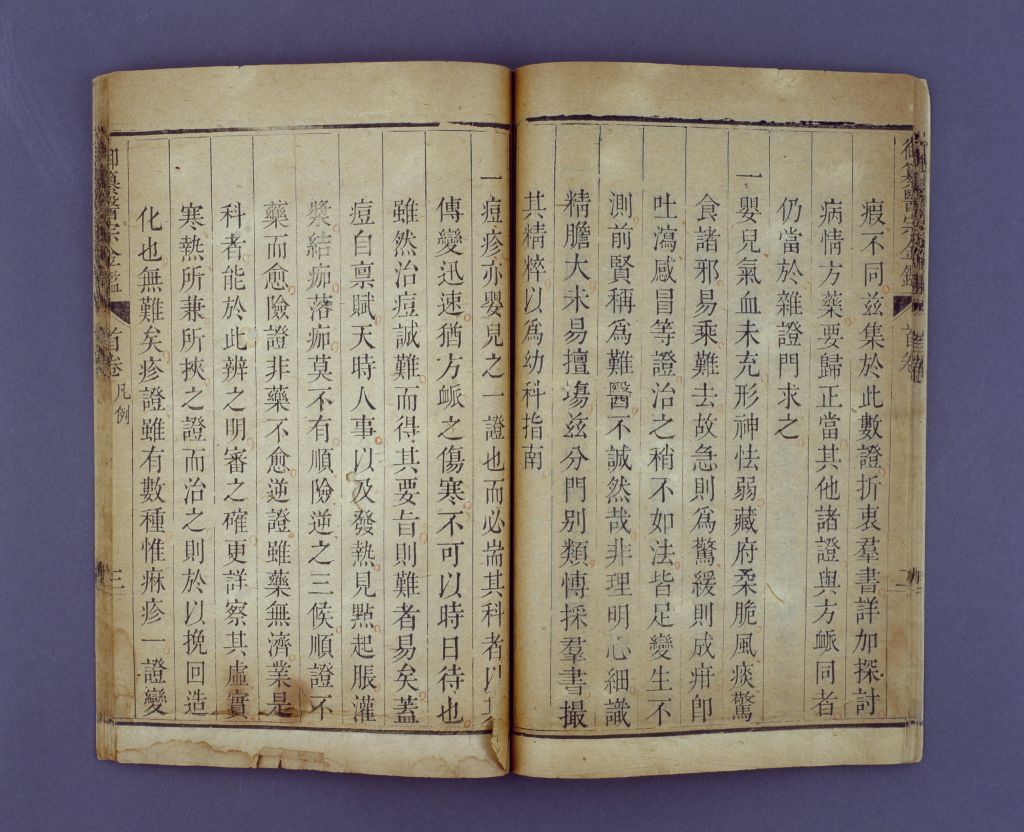 御纂醫宗金鑑
首卷
二
瘕不同茲集於此數證折衷羣書詳加探討
病情方藥要歸正當其他諸證與方脈同者
仍當於雜證門求之
一嬰兒氣血未充形神怯弱藏府柔脆風痰驚
食諸邪易乘難去故急則爲驚緩則成疳卽
吐瀉感冒等證治之稍不如法皆足變生不
測前賢稱爲難醫不誠然哉非理明心細識
精膽大未易擅塲茲分門别類慱採羣書撮
其精粹以爲幼科指南
一痘疹亦嬰兒之一證也而必耑其科者以其
傳變迅速猶方脈之傷寒不可以時日待也
雖然治痘誠難而得其要旨則難者易矣蓋
痘自稟賦天時人事以及發熱見㸃起脹灌
漿結痂落痂莫不有順險逆之三候順證不
藥而愈險證非藥不愈逆證雖藥無濟業是
科者能於此辨之明審之確更詳察其虛實
寒熱所兼所挾之證而治之則於以挽回造
化也無難矣疹證雖有數種惟痳疹一證變
御纂醫宗金鑑
首卷
凡例
三